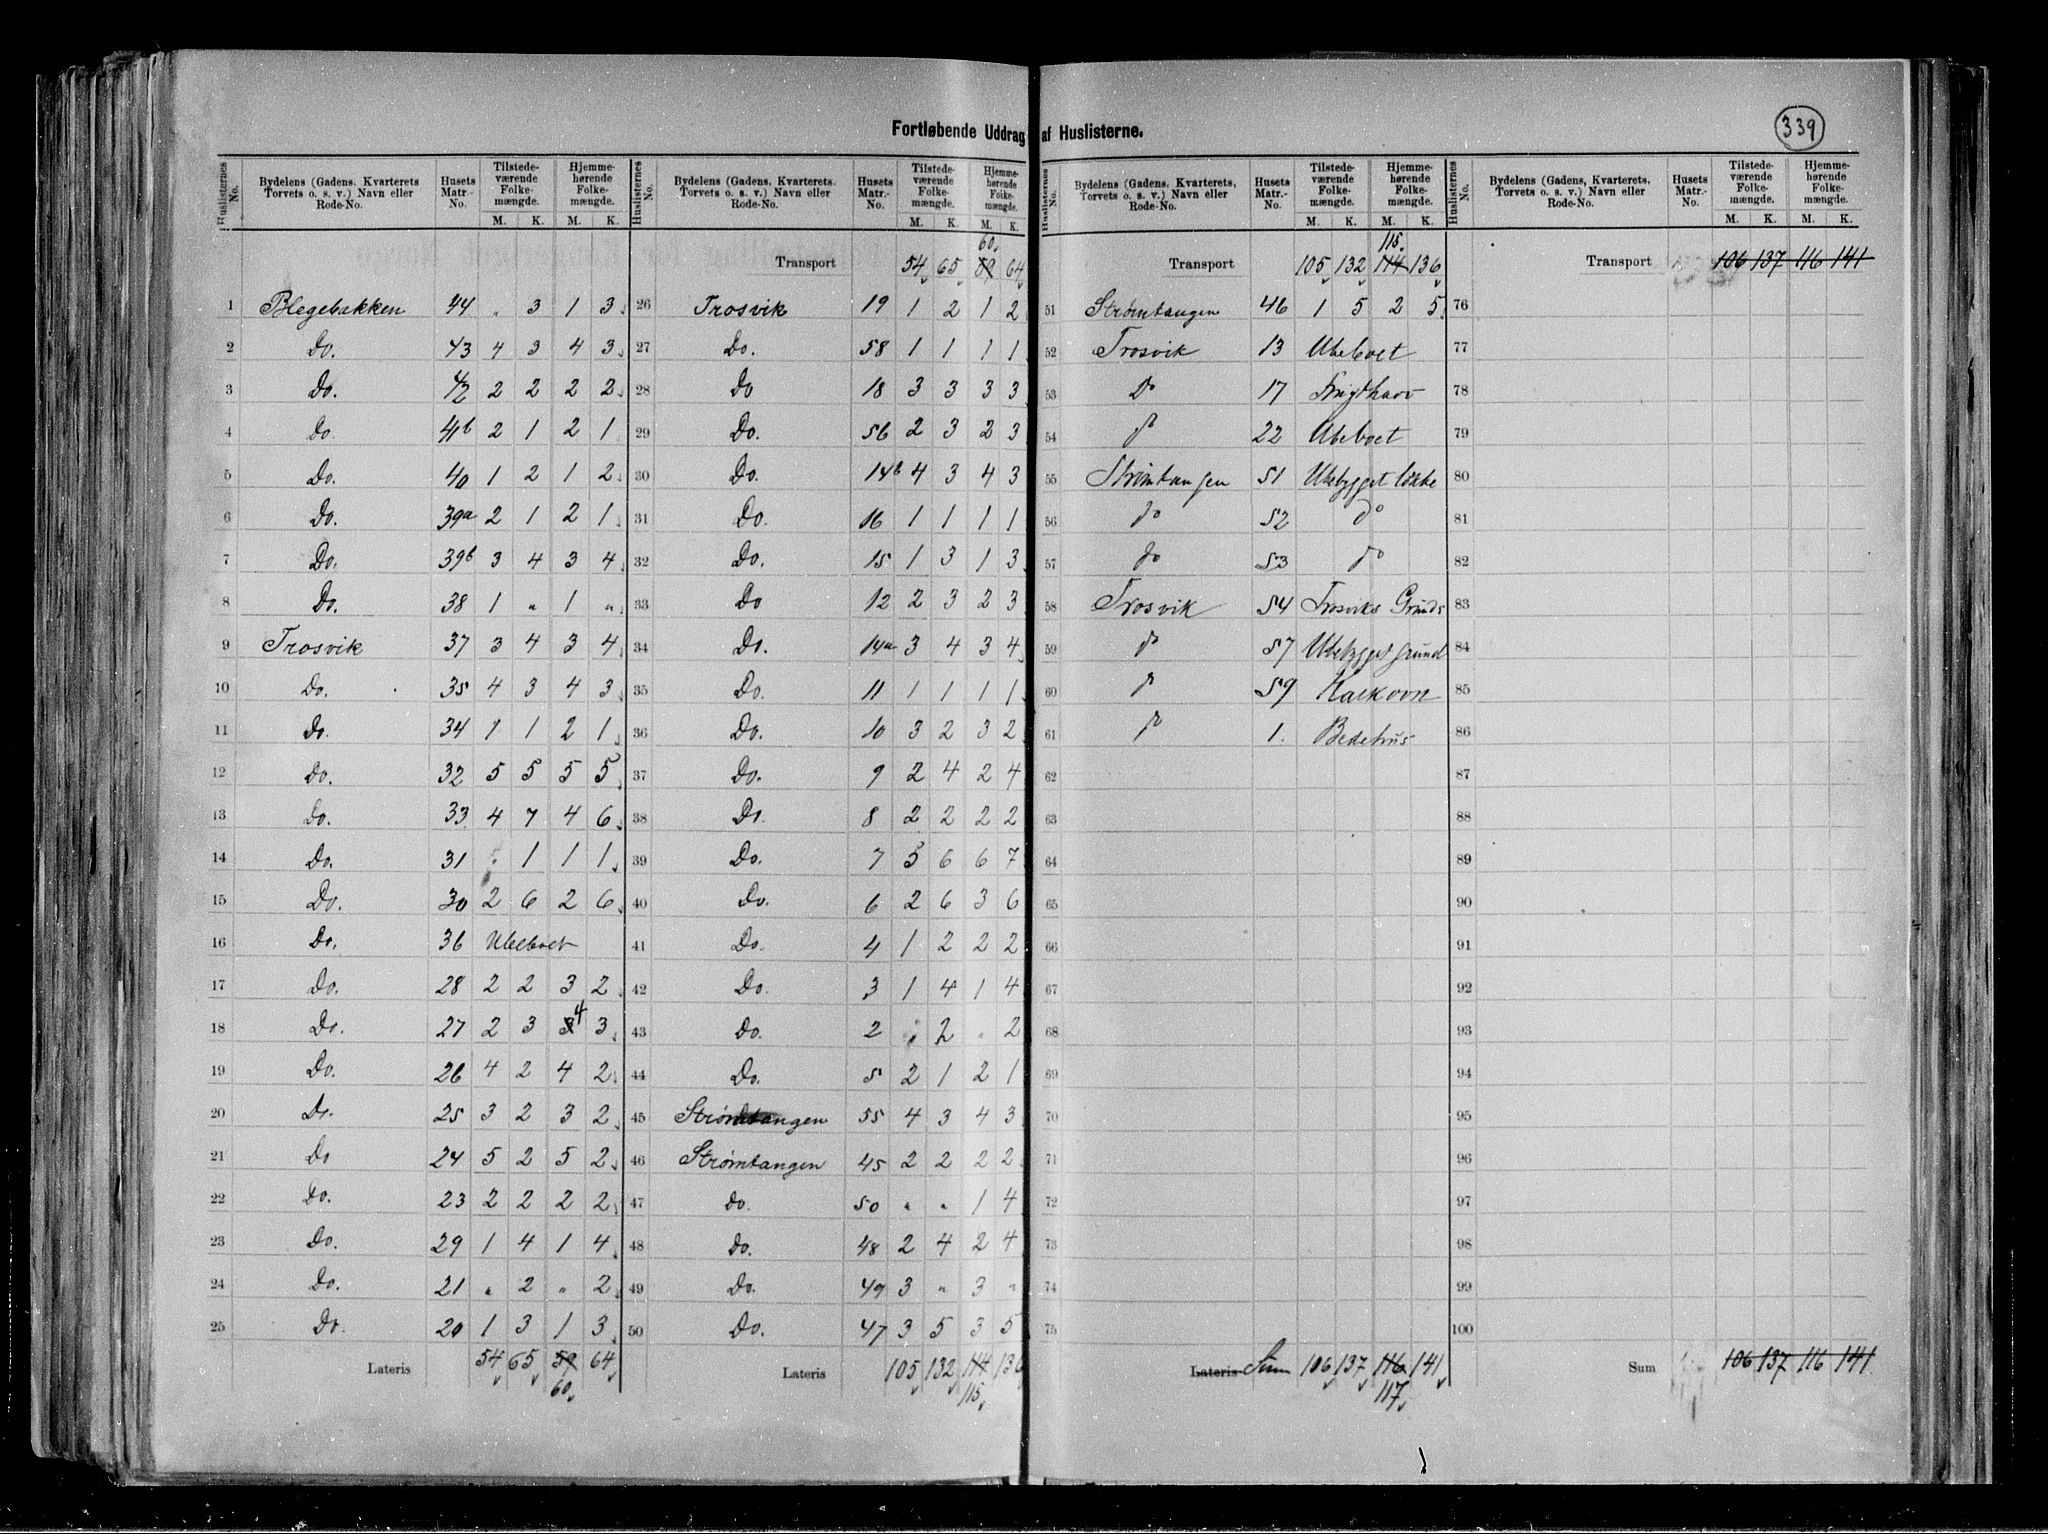 Fortløbende Uddrag af Huslisterne.
339
Huslisternes No. | Bydelens (Gadens, Kvarterets, Torvets o. s. v.) Navn eller Rode-No. | Husets Matr.-No. | Tilstedeværende Folkemængde. M. K. | Hjemmehørende Folkemængde. M. K.
1 Blegebakken 44 „ 3 1 3
2 Do. 43 4 3 4 3
3 Do. 42 2 2 2 2
4 Do. 41b 2 1 2 1
5 Do. 40 1 2 1 2
6 Do. 39a 2 1 2 1
7 Do. 39b 3 4 3 4
8 Do. 38 1 „ 1 „
9 Trosvik 37 3 4 3 4
10 Do. 35 4 3 4 3
11 Do. 34 1 1 2 1
12 Do. 32 5 5 5 5
13 Do. 33 4 7 4 6
14 Do. 31 „ 1 1 1
15 Do. 30 2 6 2 6
16 Do. 36 Ubeboet
17 Do. 28 2 2 3 2
18 Do. 27 2 3 3 4 3
19 Do. 26 4 2 4 2
20 Do. 25 3 2 3 2
21 Do 24 5 2 5 2
22 Do. 23 2 2 2 2
23 Do. 29 1 4 1 4
24 Do. 21 „ 2 „ 2
25 Do. 20 1 3 1 3
Lateris 54 65 59 64
60
Huslisternes No. | Bydelens (Gadens, Kvarterets, Torvets o. s. v.) Navn eller Rode-No. | Husets Matr.-No. | Tilstedeværende Folkemængde. M. K. | Hjemmehørende Folkemængde. M. K.
60
Transport 54 65 59 64
26 Trosvik 19 1 2 1 2
27 Do. 58 1 1 1 1
28 Do 18 3 3 3 3
29 Do. 56 2 3 2 3
30 Do. 14b 4 3 4 3
31 Do. 16 1 1 1 1
32 Do. 15 1 3 1 3
33 Do 12 2 3 2 3
34 Do. 14a 3 4 3 4
35 Do. 11 1 1 1 1
36 Do. 10 3 2 3 2
37 Do. 9 2 4 2 4
38 Do. 8 2 2 2 2
39 Do. 7 5 6 6 7
40 Do. 6 2 6 3 6
41 Do. 4 1 2 2 2
42 Do. 3 1 4 1 4
43 Do. 2 „ 2 „ 2
44 Do. 5 2 1 2 1
45 Strømtangen 55 4 3 4 3
46 Strømtangen 45 2 2 2 2
47 do. 50 „ „ 1 4
48 Do. 48 2 4 2 4
49 Do. 49 3 „ 3 „
50 Do. 47 3 5 3 5
Lateris 105 132 114 136
115
Huslisternes No. | Bydelens (Gadens, Kvarterets, Torvets o. s. v.) Navn eller Rode-No. | Husets Matr.-No. | Tilstedeværende Folkemængde. M. K. | Hjemmehørende Folkemængde. M. K.
115
Transport 105 132 114 136
51 Strømtangen 46 1 5 2 5
52 Trosvik 13 Ubeboet
53 Do 17
54 do 22 Ubeboet
55 Strømtangen 51 Ubebygget løkke
56 do 52 do
57 do 53 do
58 Trosvik 54 Trosviks Grund
59 do 57 Ubebygget grund
60 do 59 Kalkovn
61 do 1. Bedehus
62
63
64
65
66
67
68
69
70
71
72
73
74
75
Lateris Sum 106 137 116 141
117
Huslisternes No. | Bydelens (Gadens, Kvarterets, Torvets o. s. v.) Navn eller Rode-No. | Husets Matr.-No. | Tilstedeværende Folkemængde. M. K. | Hjemmehørende Folkemængde. M. K.
Transport 106 137 116 141
76
77
78
79
80
81
82
83
84
85
86
87
88
89
90
91
92
93
94
95
96
97
98
99
100
Sum 106 137 116 141